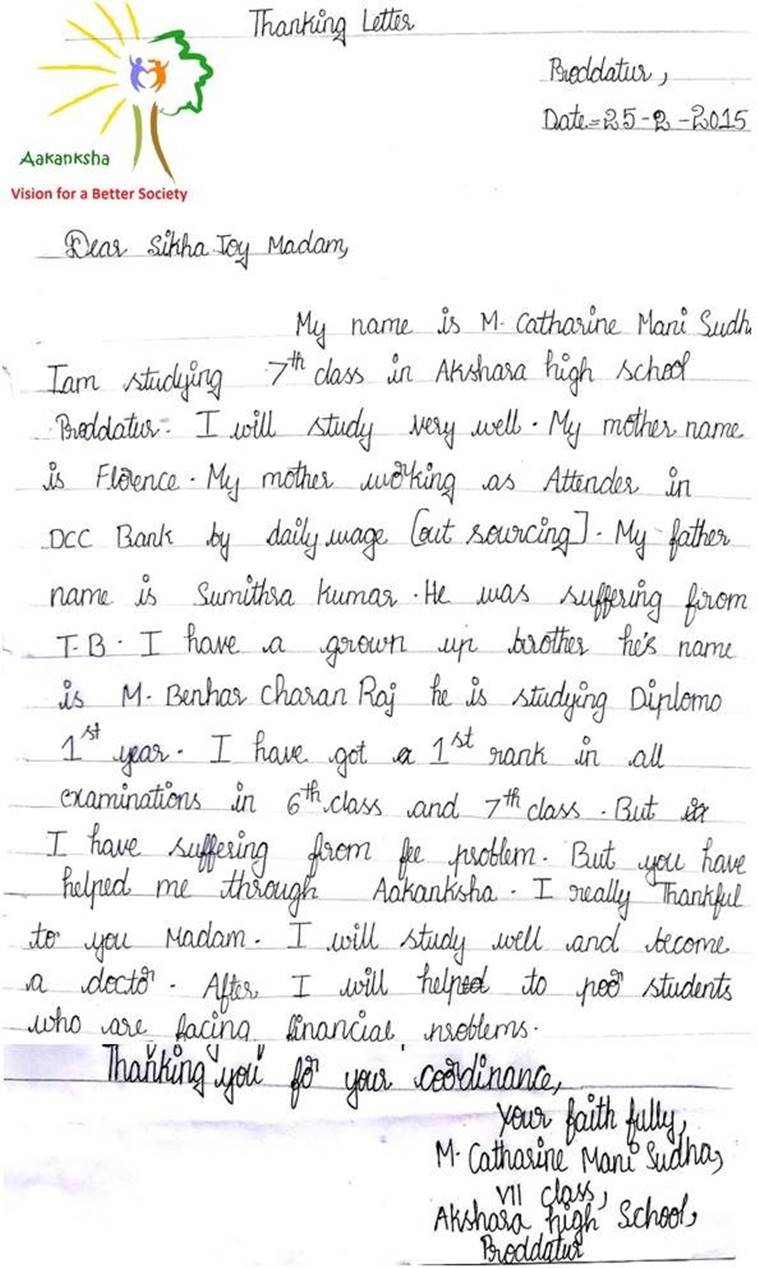 Thanking Letter
Proddatur,
Date=25-2-2015
Aakanksha
Vision for a Better Society
Dear Sikha Joy Madam,
My name is M. Catharine Mani Sudh
Iam studying 7th class in Akshara high school
Proddatur. I will study very well. My mother name
is Florence. My mother working as Attender in
DCC Bank by daily wage [out sourcing]. My father
name is Sumithra kumar. He was suffering from
T.B. I have a grown up brother he's name
is M. Benhar Charan Raj he is studying Diplomo
1st year. I have got a 1st rank in all
examinations in 6th class and 7th class. But
I have suffering from fee problem. But you have
helped me through Aakanksha. I really Thankful
to you Madam. I will study well and become
a doctor. After I will helped to poor students
who are facing financial problems.
Thanking you for your coordinance,
your faith fully,
M. Catharine Mani Sudha,
VII class,
Akshara high School,
Proddatur